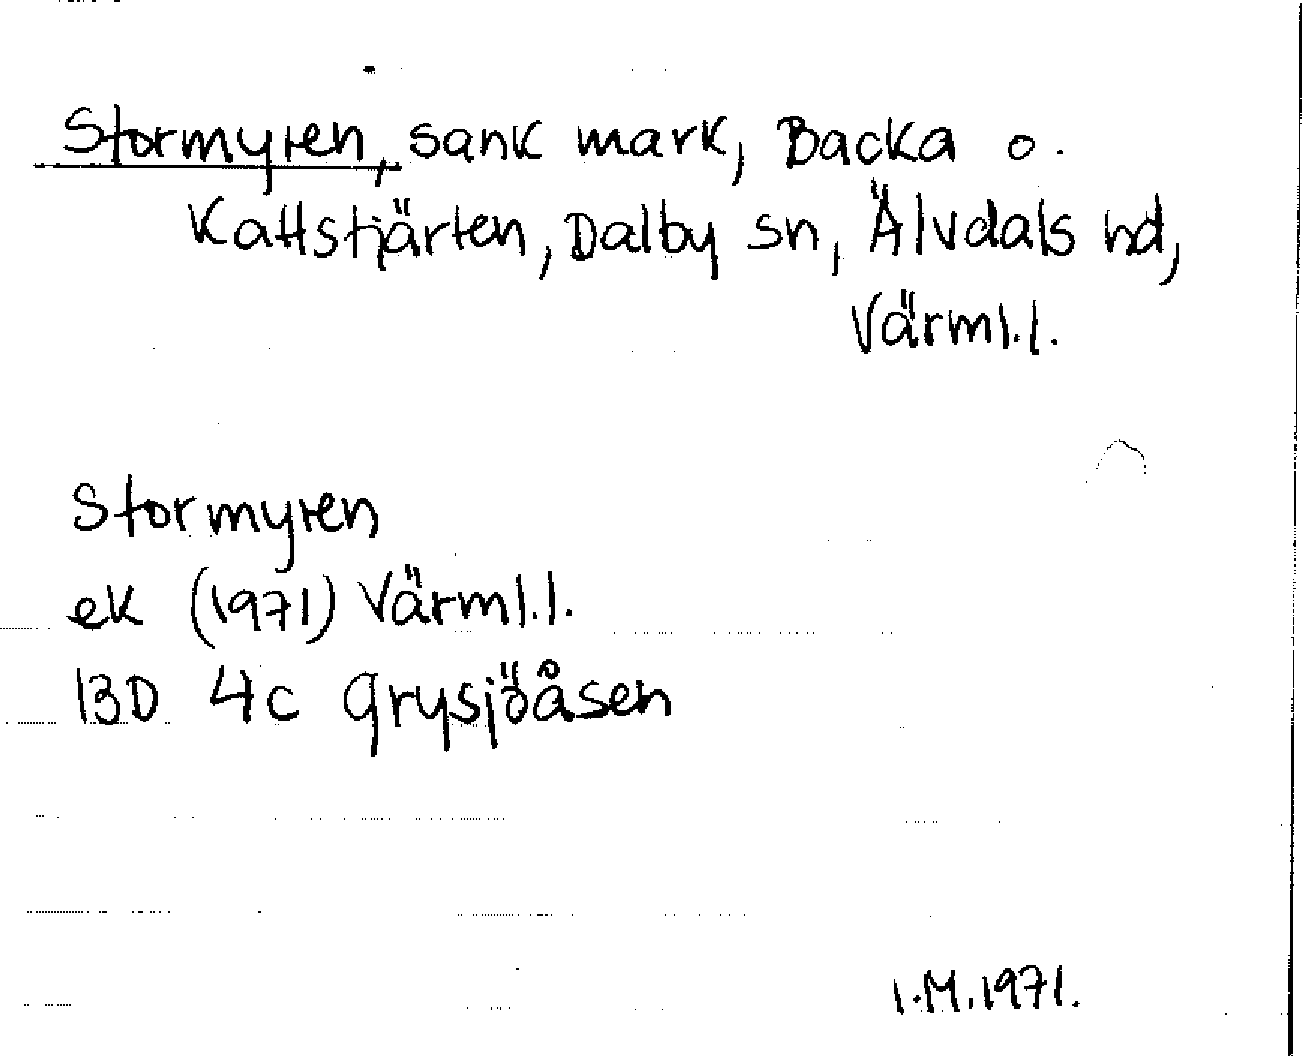 Stormyren, sank mark, Backa o.
Kattstjärten, Dalby sn, Älvdals hd,
Värml.l.
Stormyren
ek (1971) Värml.l.
13D 4c Grysjöåsen
I.M.1971.